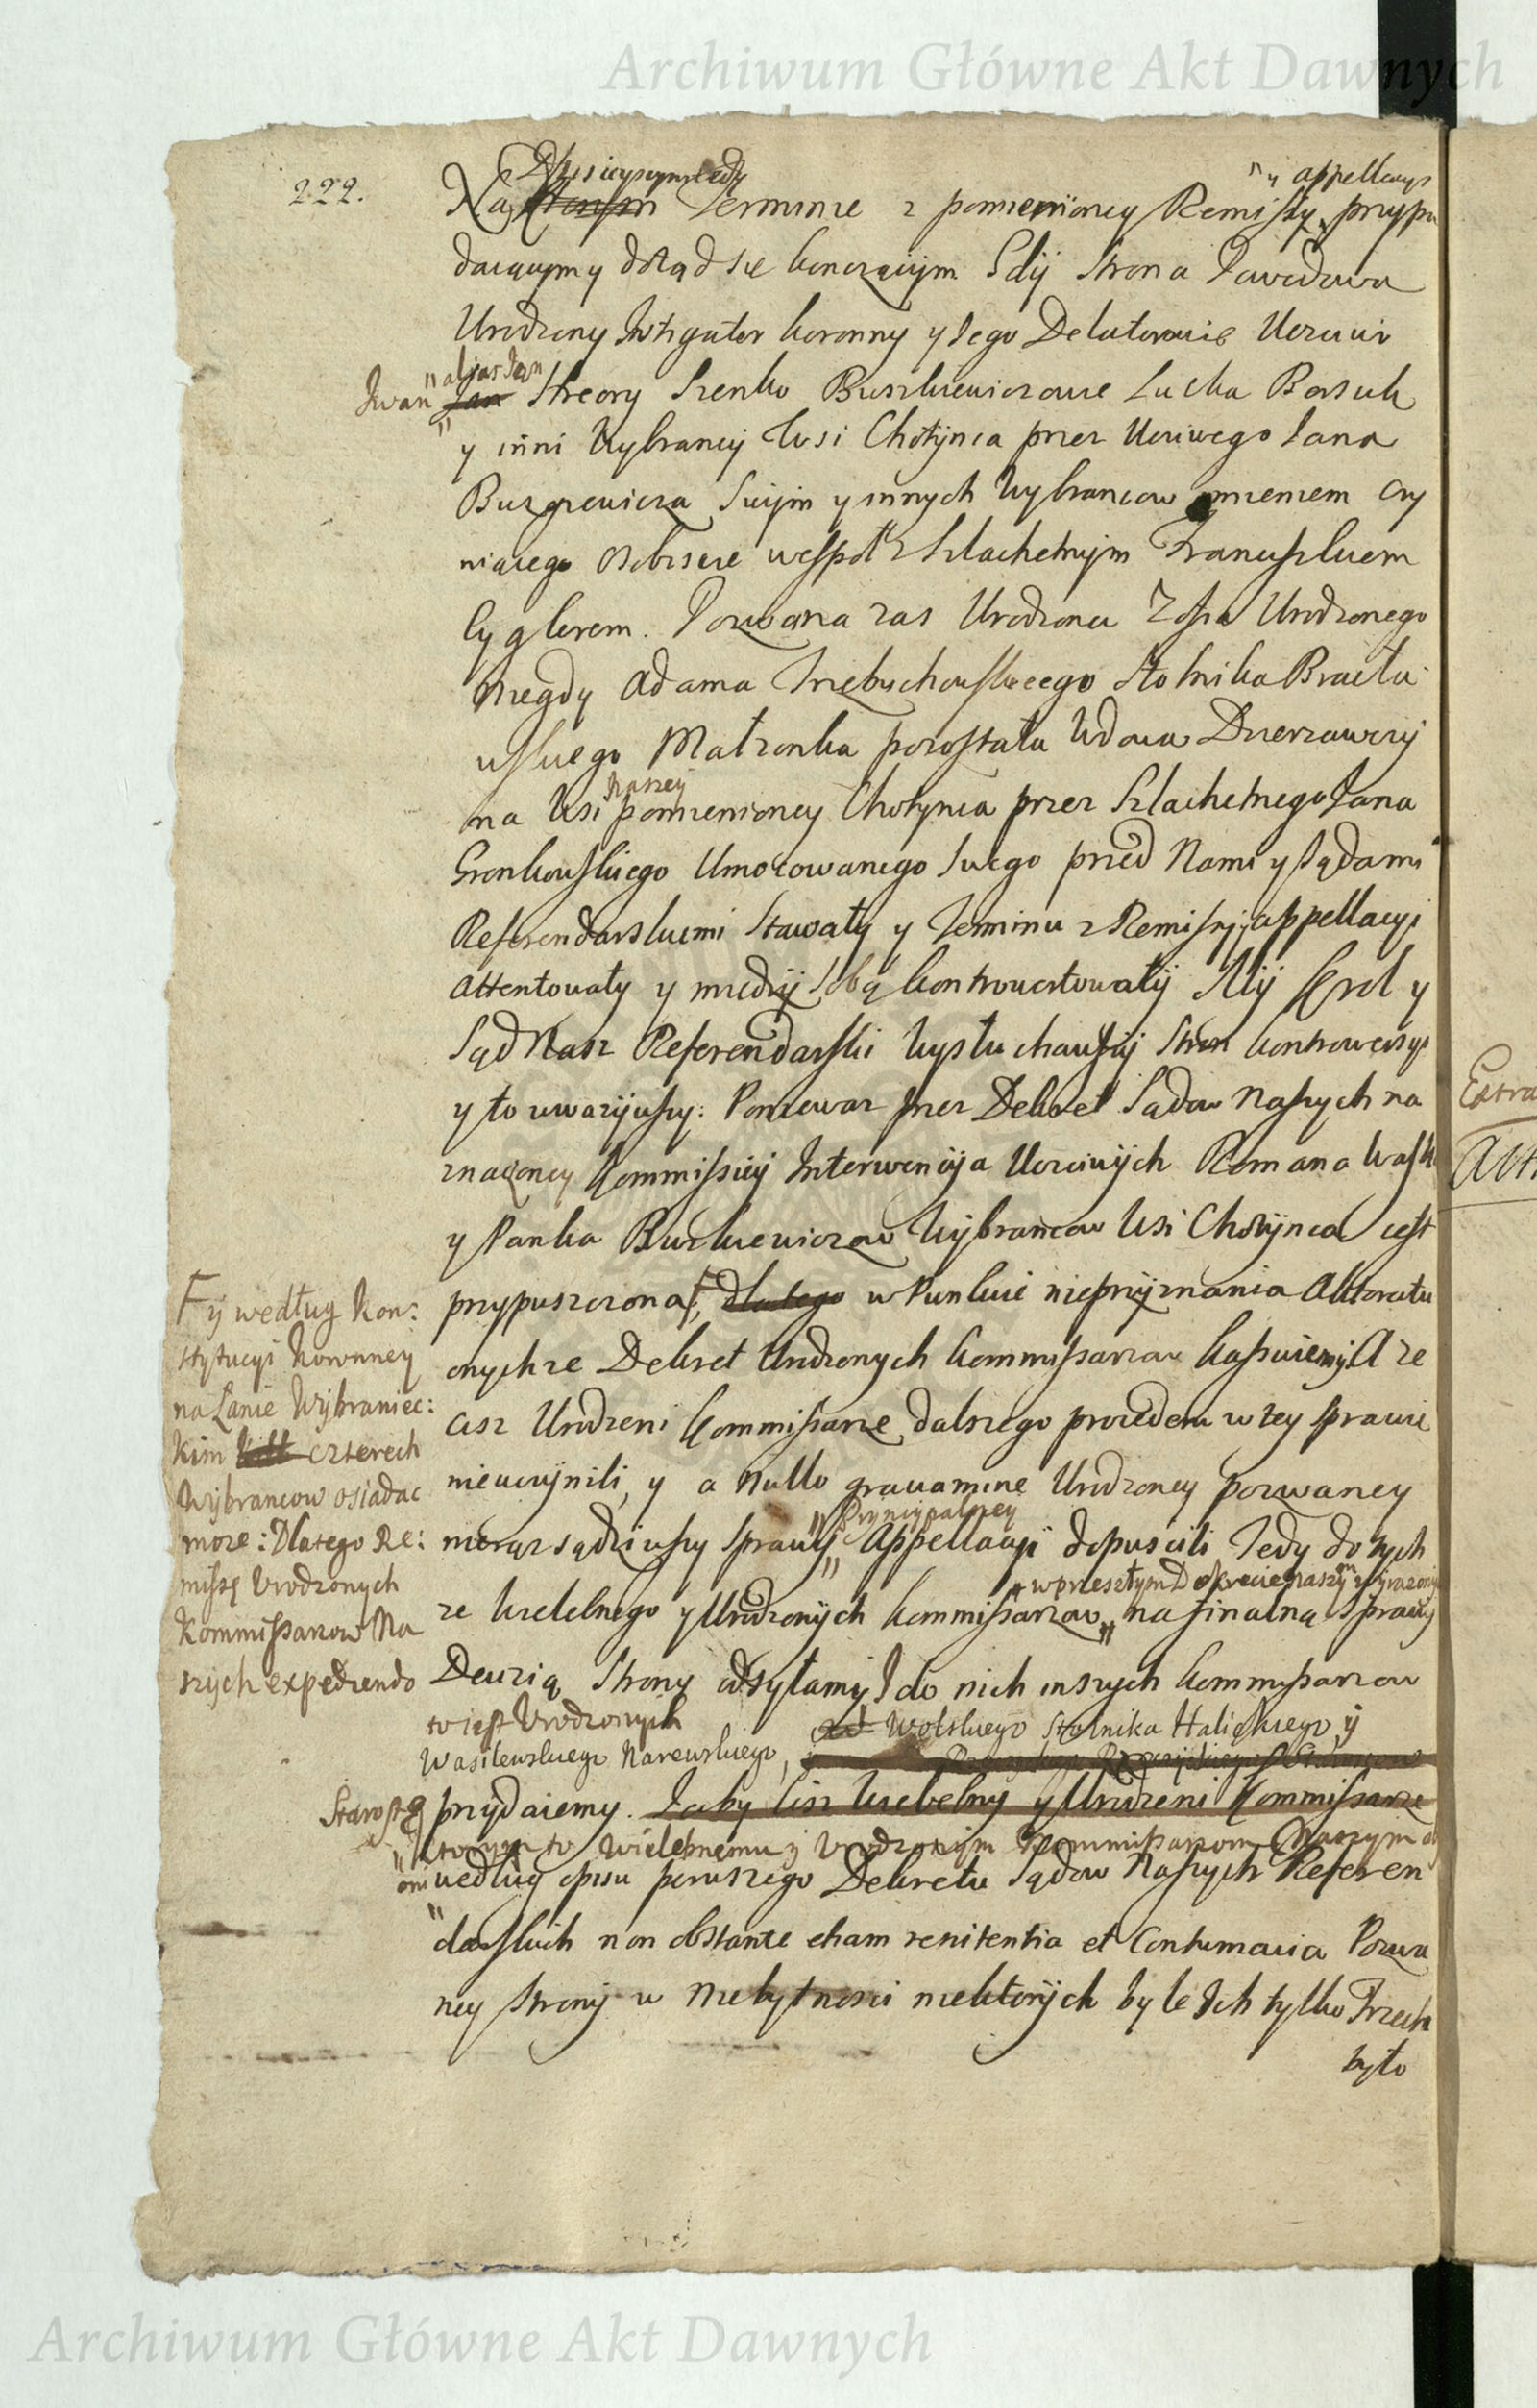 Archiwum Główne Akt Dawnych
222.
Dzisieyszym tedy
y appellacyi
Na Terminie z pomienioney Remissy przypa
daiącym y dotąd się konczącym Gdy Strona Powodowa
Urodzony Instygator koronny y Jego Delatorowie Uczciwi
aljas Jan
Iwan Jan Hrecry Senko Buszkiewiczowie Lucka Borsuk
y inni Wybrancy Wsi Chotynca przez Uczciwego Jana
Buzgiewicza Swym y innych Wybrancow imieniem czy
niącego osobiscie wespoł z Szlachetnym Franciszkiem
Cyglerem. Pozwana zas Urodzona Zofia Urodzonego
niegdy Adama Trzebuchowskiego Stolnika Bracła
wskiego Małzonka pozostała Wdowa Dzierzawczyni
Naszey
na Wsi pomienioney Chotynca przez Szlachetnego Jana
Gronkowskiego Umocowanego Swego przed Nami y Sądami
Referendarskiemi Stawały y Terminu z Remissyi appellacyi
attentowały y między Sobą kontrowertowały My Krol y
Sąd Nasz Referendarski Wysłuchawszy Stron kontrowersyi
y to uwazywszy: Poniewaz przez Dekret Sądow Naszych na
znaczoney Kommissiey Interwencyja Uczciwych Romana Waska
y Panka Buzkiewiczow Wybrancow Wsi Chotynca iest
przypuszczona, dlatego w Punkcie nieprzyznania Aktoratu
onychze Dekret Urodzonych Kommissarzow kassuiemy. A ze
ciz Urodzeni Kommissarze dalszego procederu w tey sprawie
nieuczynili, y a nullo gravamine Urodzoney pozwaney
Pryncypalney
nierozsądziwszy sprawy Appellacyi dopuscili Tedy do tych
w przeszłym Dekrecie naszym wyrazonych
ze Wielebnego y Urodzonych Kommissarzow na finalną sprawy
Decizią Strony odsyłamy I do nich inszych Kommissarzow
to iest Urodzonych Wolskiego Stolnika Halickiego, y
Wasilewskiego Narewskiego,
Starostę przydaiemy. Zaby Cisz Wielebny y Urodzeni Kommissarze
ktorym to Wielebnemu y Urodzonym Kommissarzom Naszym
oni według opisu pierwszego Dekretu Sądow Naszych Referen
darskich non obstante etiam renitentia et Contumacia Pozwa
ney Strony w niebytnosci niektorych byle Ich tylko Trzech
było
F y według Kon:
stytucyi Nowaney
na Łanie Wybraniec:
kim czterech
Wybrancow osiadac
moze: Dlatego Re:
missę Urodzonych
Kommissarzow Na
szych expediendo
Extra
Act
Archiwum Główne Akt Dawnych